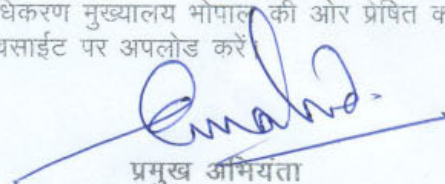 धिकरण मुख्यालय भोपाल की ओर प्रेषित क
साईट पर अपलोड करें।
प्रमुख अभियंता